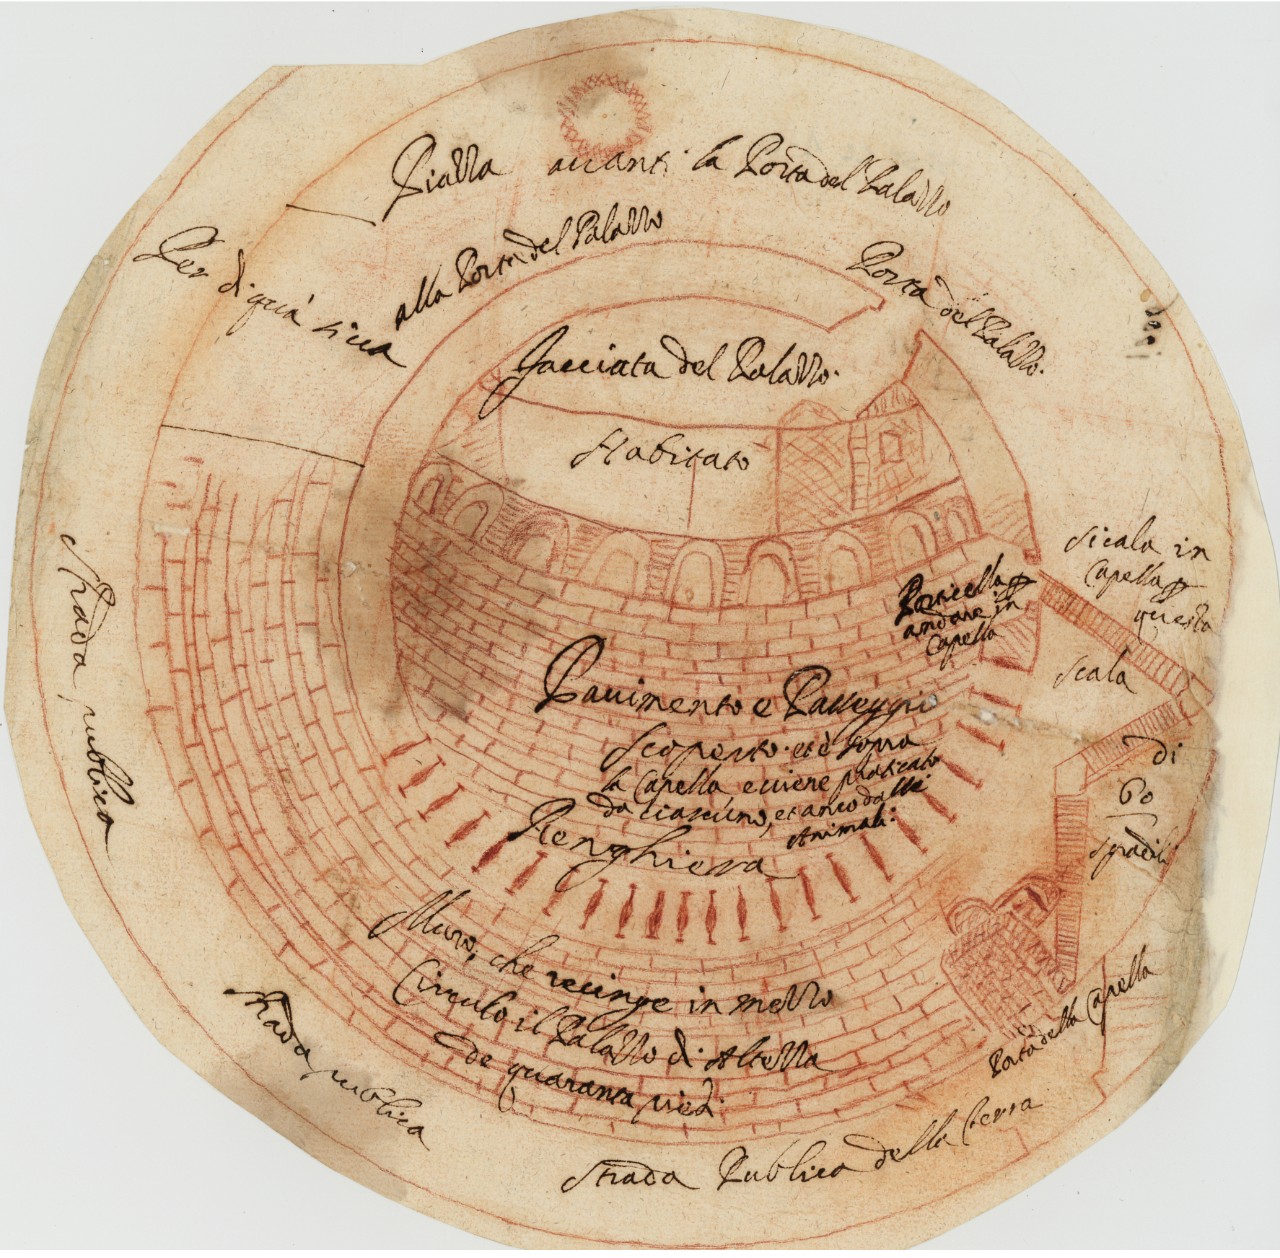 Piazza auanti la Porta del Palazzo
Per di quà si ua
alla Porta del Palazzo
Porta del Palazzo.
Facciata del Palazzo.
Habitato
Scala in
Capella
questa
scala
di
60
gradili
Porticella p
andare in
Capella
Pauimento e Passeggio
scoperto. et è sopra
la Capella e uiene praticato
da ciascuno, et anco dalli
Animali.
Renghiera
Muro, che recinge in mezzo
Circulo il Palazzo di Altezza
de quaranta piedi
Strada publica
Strada publica
Strada Publica della Terra
Porta della Capella